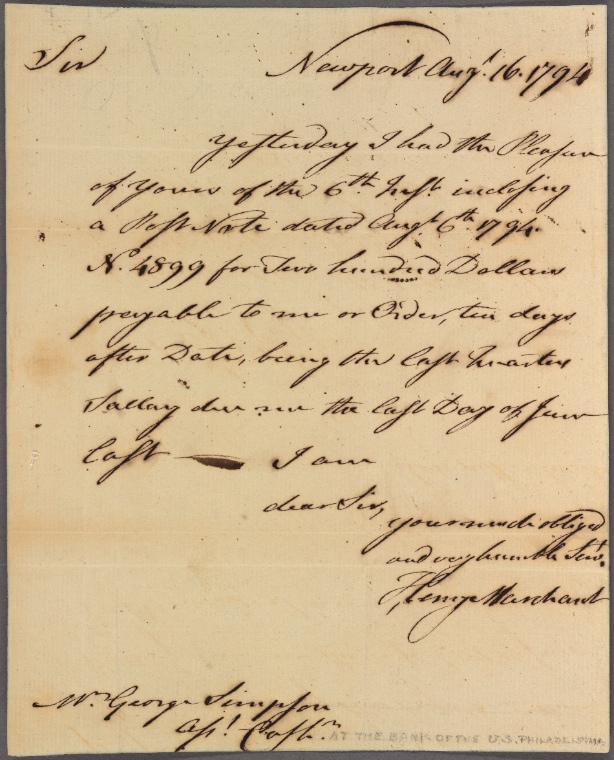 Sir
Newport Augt. 16. 1794
Yesterday I had the Pleasure
of yours of the 6th Inst. inclosing
a Post Note dated Augt. 6th. 1794.
No. 4899 for Two hundred Dollars
payable to me or Order, ten days
after Date, being the last Quarters
Sallary due me the last Day of June
last — I am
dear Sir,
your much obliged
and very humble Servt.
Henry Marchant
Mr. George Simpson
Asst. Cashr.
AT THE BANK OF THE U.S. PHILADELPHIA